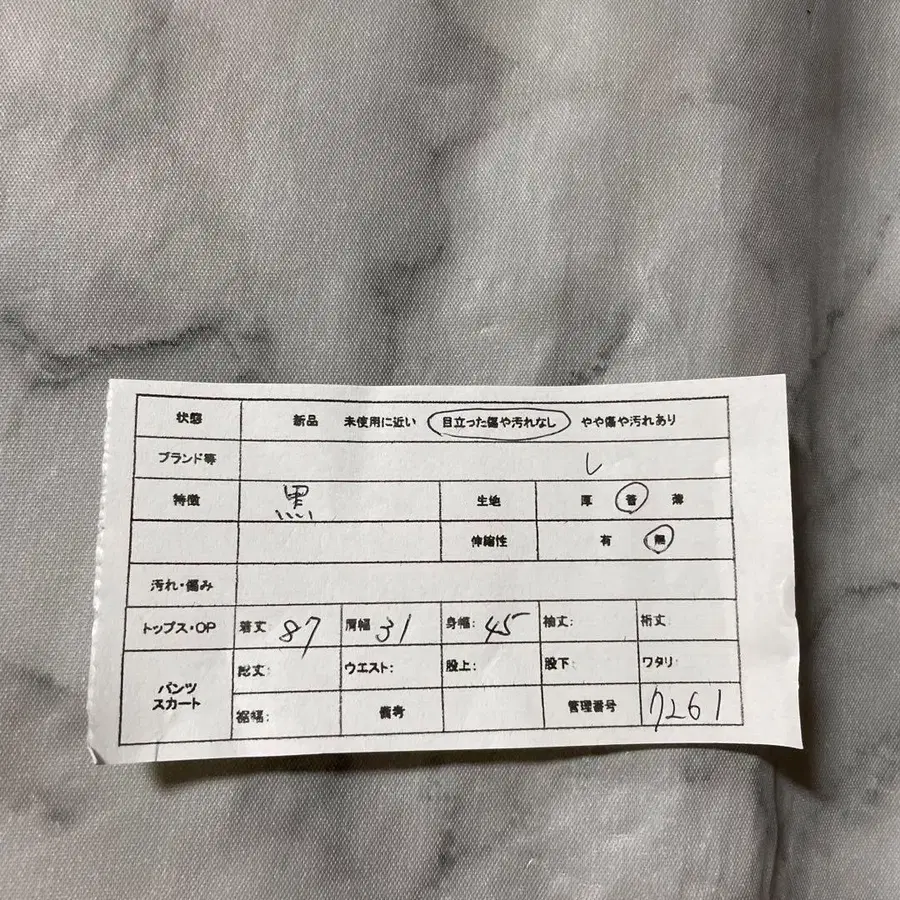 状態 新品 未使用に近い 目立った傷や汚れなし やや傷や汚れあり
ブランド等 レ
特徴 黒 生地 厚 普 薄
伸縮性 有 無
汚れ・傷み
トップス・OP 着丈: 87 肩幅 31 身幅: 45 袖丈: 裄丈:
パンツ スカート 総丈: ウエスト: 股上: 股下: ワタリ:
裾幅: 備考 管理番号 7261